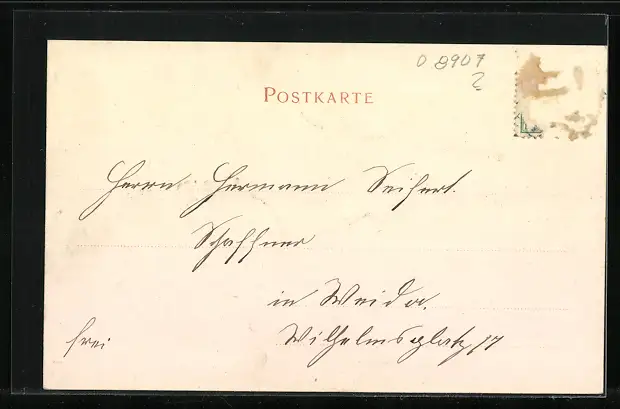 0 8907
2
POSTKARTE
Herrn Hermann Seifert.
Schaffner
in Weida.
frei Wilhelmsplatz 17